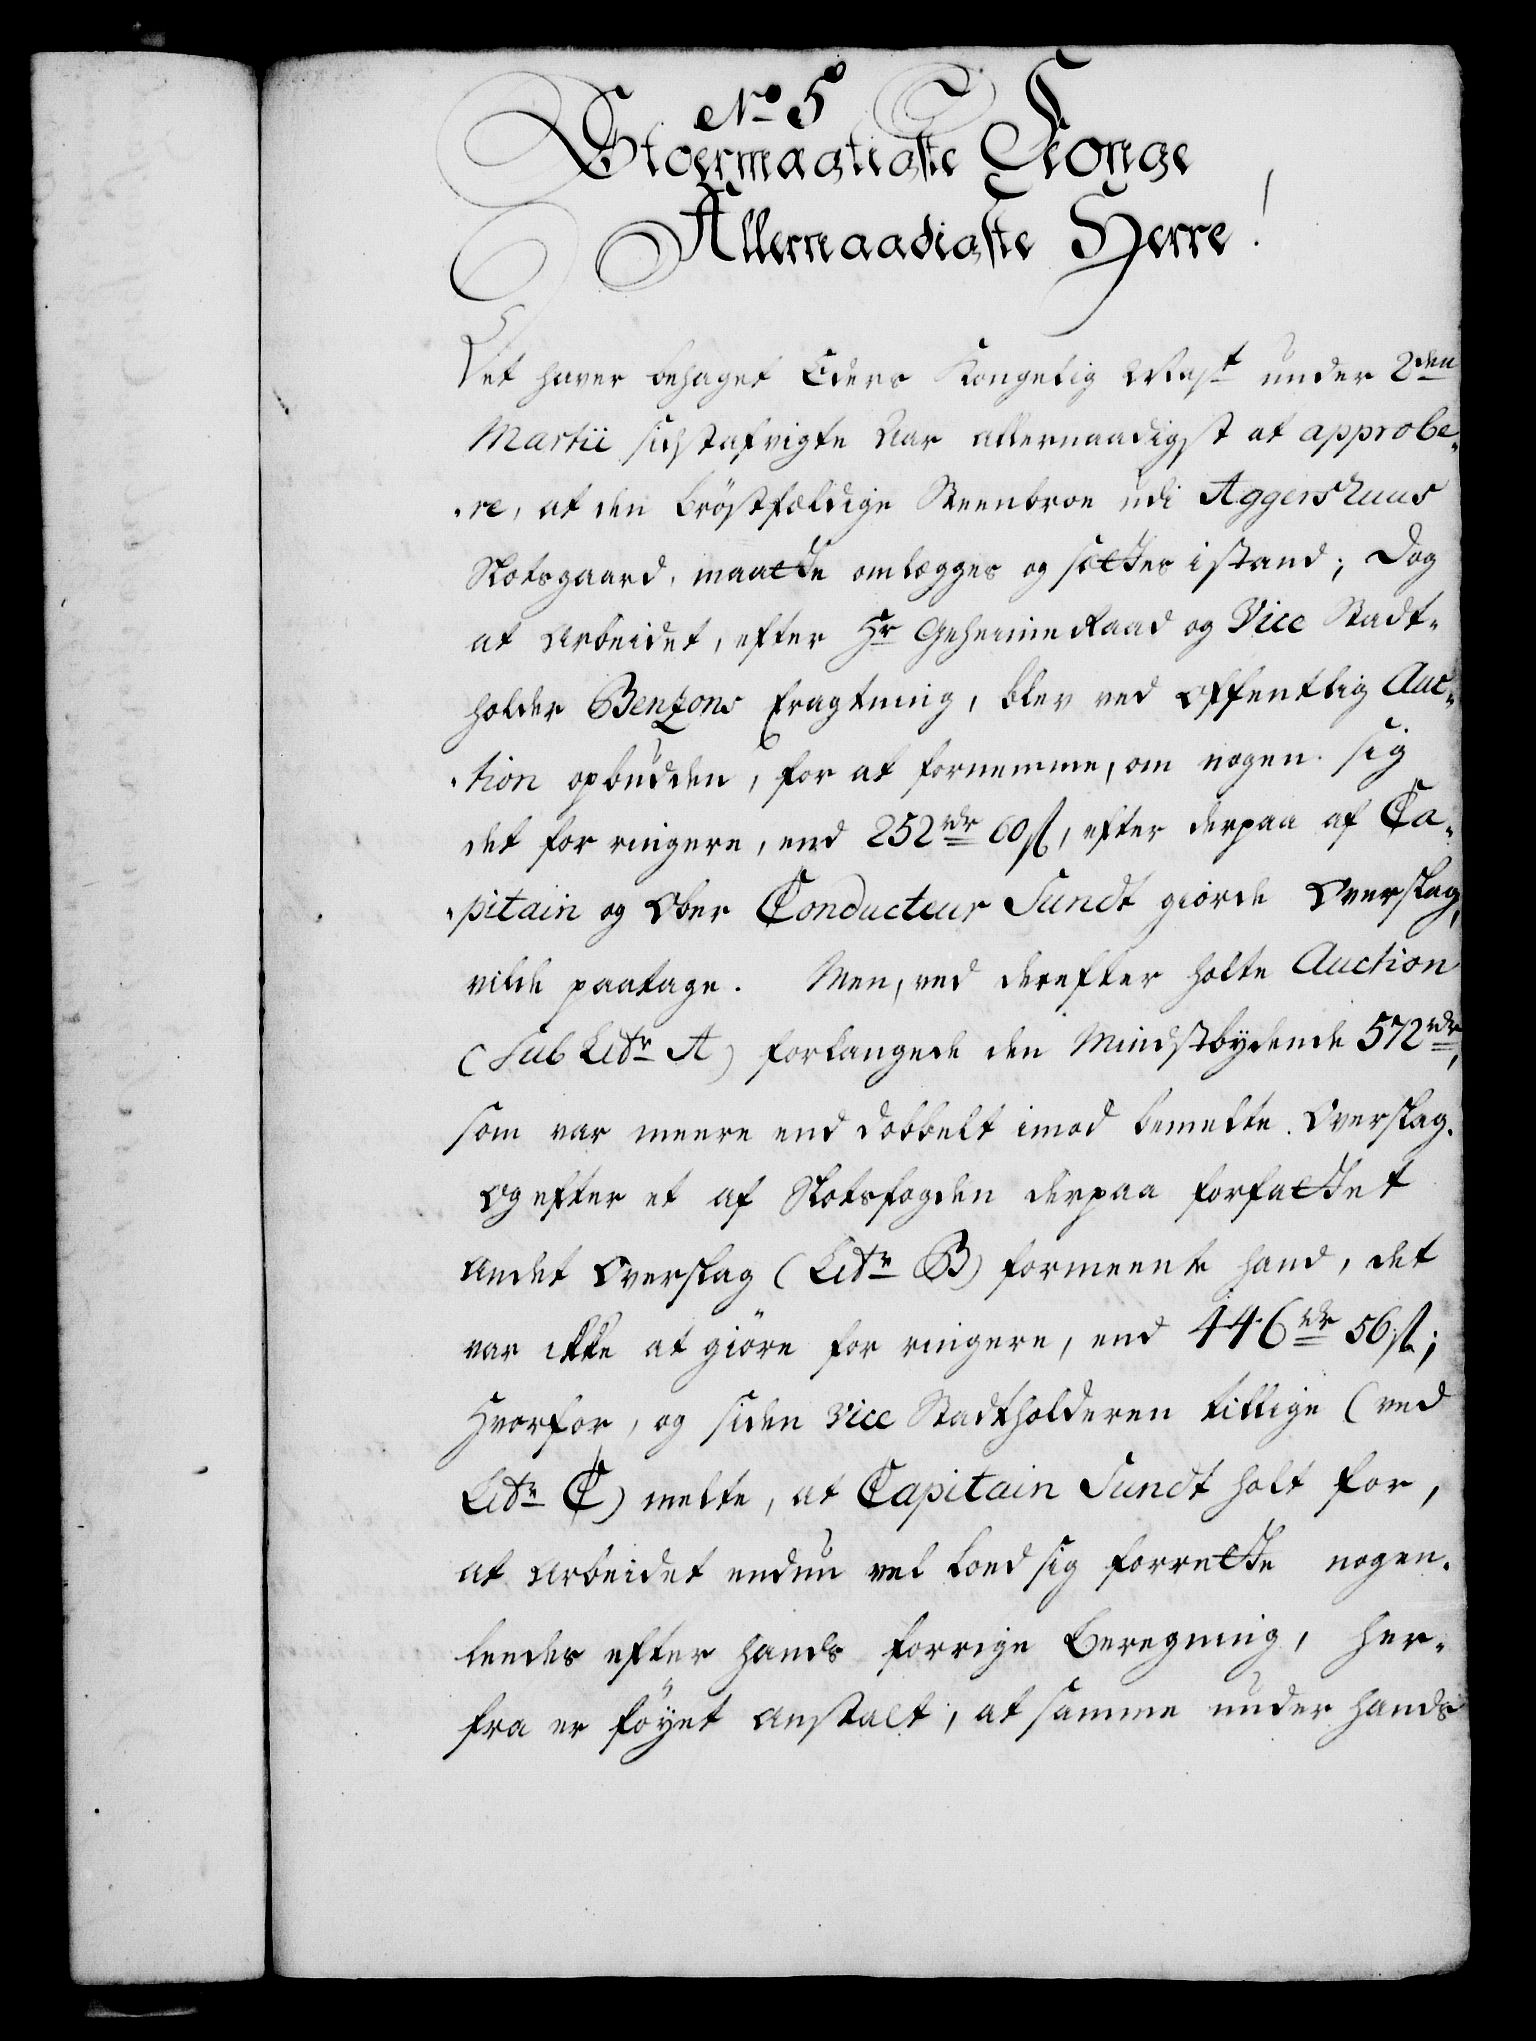 No 5
Stoermægtigste Konge
Allernaadigste Herre!
Det haver behaget Eders Kongelig Mast under 2den
Martii sidstafvigte Aar allernaadigst at approbe-
-re, at den bröstfældige Steenbroe udi Aggershuus
Slotsgaard, maatte omlægges og sættes istand; Dog
at Arbeidet, efter Hr GeheimeRaad og Vice Stadt-
holder Benzons Eragtning, blev ved offentlig Auc-
-tion opbudden, for at fornemme, om nogen sig
det for ringere, end 252 rdr 60 ß, efter derpaa af Ca-
-pitain og Ober Conducteur Sundt giorde Overslag,
vilde paatage. Men, ved derefter holte Auction
(Sub Litr A) forlangede den Mindstbydende 572 rdr,
som var meere end dobbelt imod bemelte Overslag.
Og efter et af Slotsfogden derpaa forfattet
andet Overslag (Litr B) formeente hand, det
var ikke at giöre for ringere, end 446 rdr 56 ß;
Hvorfor, og siden Vice Stadtholderen tillige (ved
Litr C) melte, at Capitain Sundt holt for,
at Arbeidet endnu vel loed sig forrette nogen-
leedes efter hands forrige Beregning, her-
fra er föyet Anstalt, at samme under hands